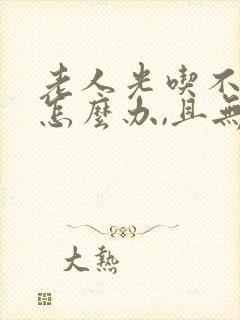 老人光喫不
怎麼办,且無
大熱